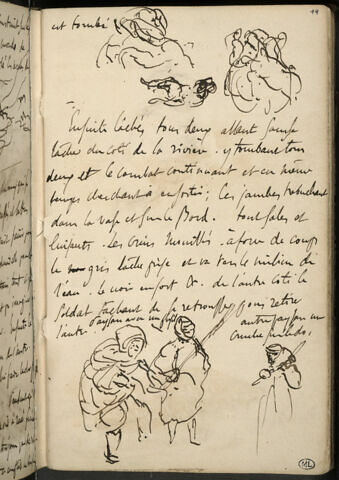 44
est tombé
Ensuite lâchés tous deux allant sans
lâche du côté de la rivière. y tombant tous
deux et le combat continuant et en même
temps cherchant à en sortir; les jambes trébuchant
dans la vase et sur le bord. tout sales et
luisants. les crins mouillés. à force de coups
le gris lâche prise et va vers le milieu de
l'eau. le noir en sort &. de l'autre côté le
soldat tâchant de se retrousser pour retirer
l'autre. Paysan avec un fusil autre paysan un
cruche
ML